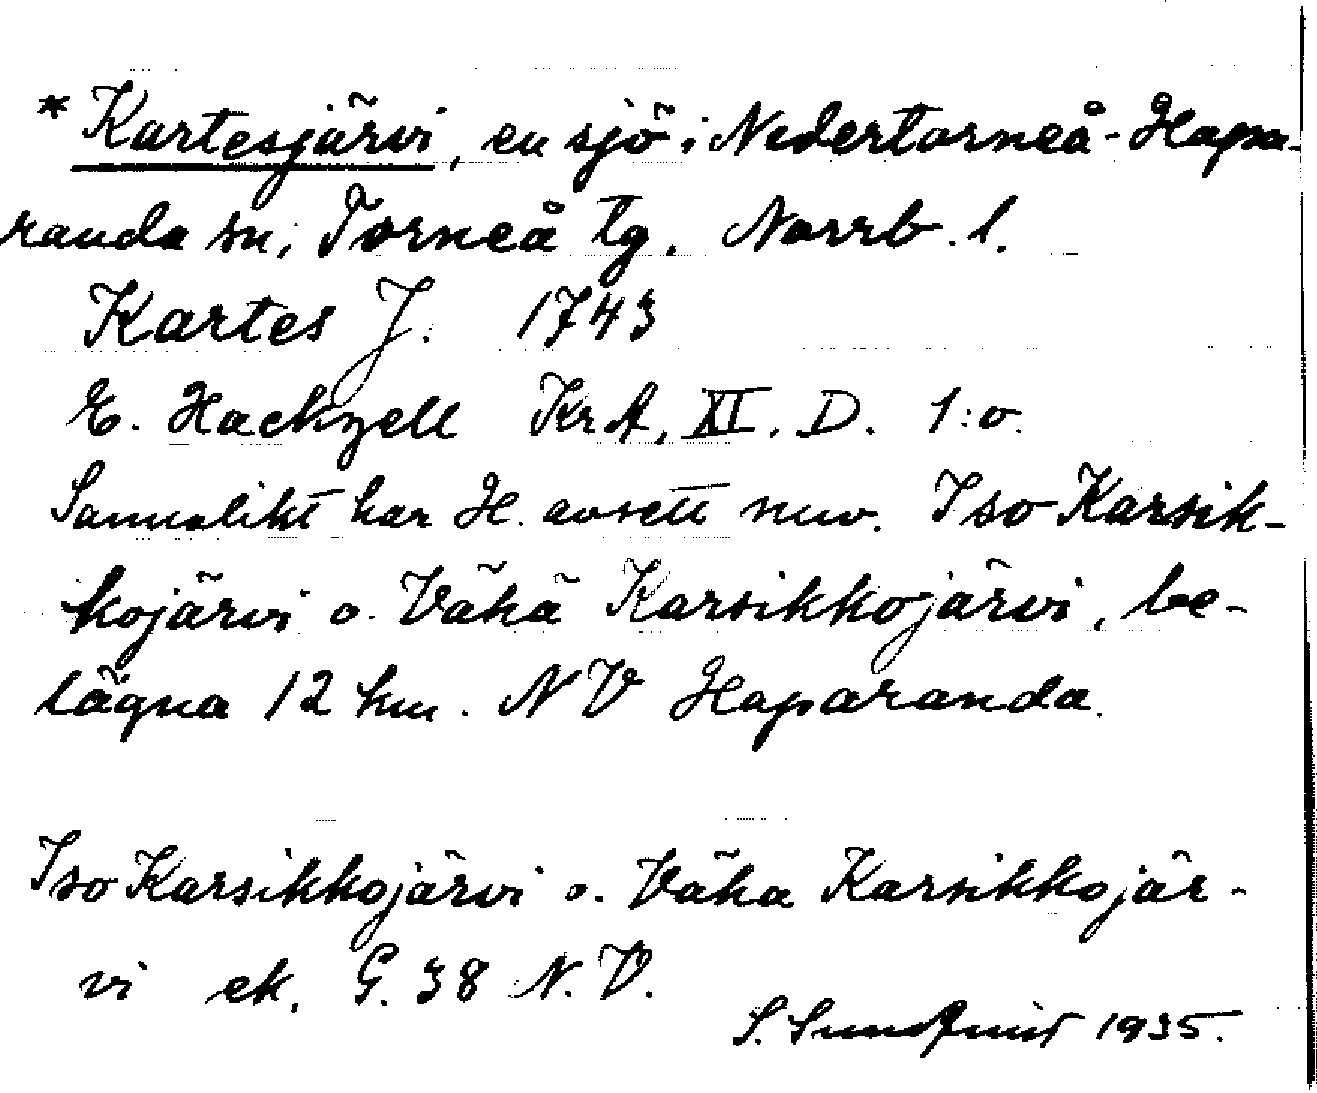 * Kartesjärvi, en sjö i Nedertorneå-Hapa-
randa sn, Torneå tg. Norrb. l.
Kartes J. 1743
E. Hackzell KrA, XI. D. 1:o.
Sannolikt har H. avsett nuv. Iso Karsik-
kojärvi o. Vähä Karsikkojärvi, be-
lägna 12 km. NV Haparanda.
Iso Karsikkojärvi o. Vähä Karsikkojär-
vi ek. G. 38 N.V.
S. Sundqvist 1935.